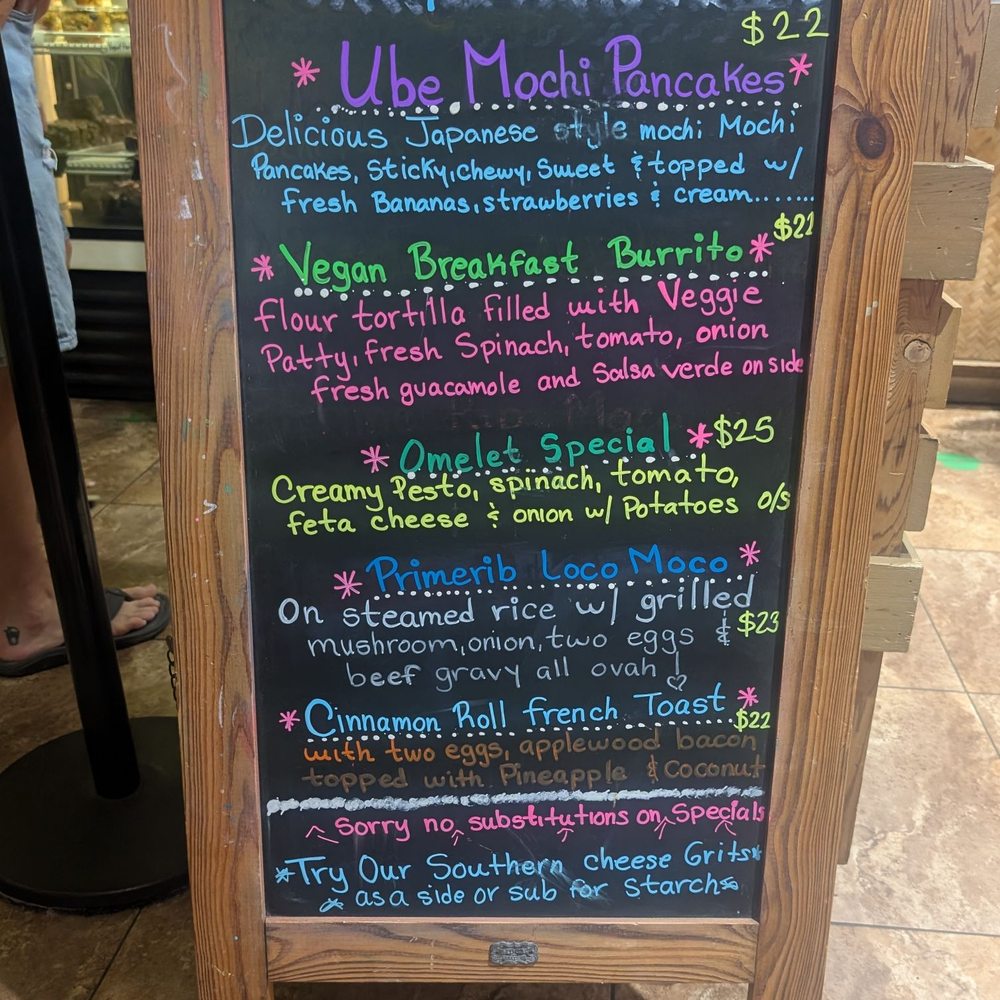 $22
* Ube Mochi Pancakes *
Delicious Japanese style mochi Mochi
Pancakes, Sticky, chewy, Sweet & topped w/
fresh Bananas, strawberries & cream.......
$21
* Vegan Breakfast Burrito *
flour tortilla filled with Veggie
Patty, fresh Spinach, tomato, onion
fresh guacamole and Salsa verde on side
* Omelet Special * $25
Creamy Pesto, spinach, tomato,
feta cheese & onion w/ Potatoes o/s
* Primerib Loco Moco *
On steamed rice w/ grilled
mushroom, onion, two eggs & $23
beef gravy all ovah!
* Cinnamon Roll french Toast *
$22
with two eggs, applewood bacon
topped with Pineapple & Coconut
Sorry no substitutions on Specials
*Try Our Southern cheese Grits*
* as a side or sub for starch*